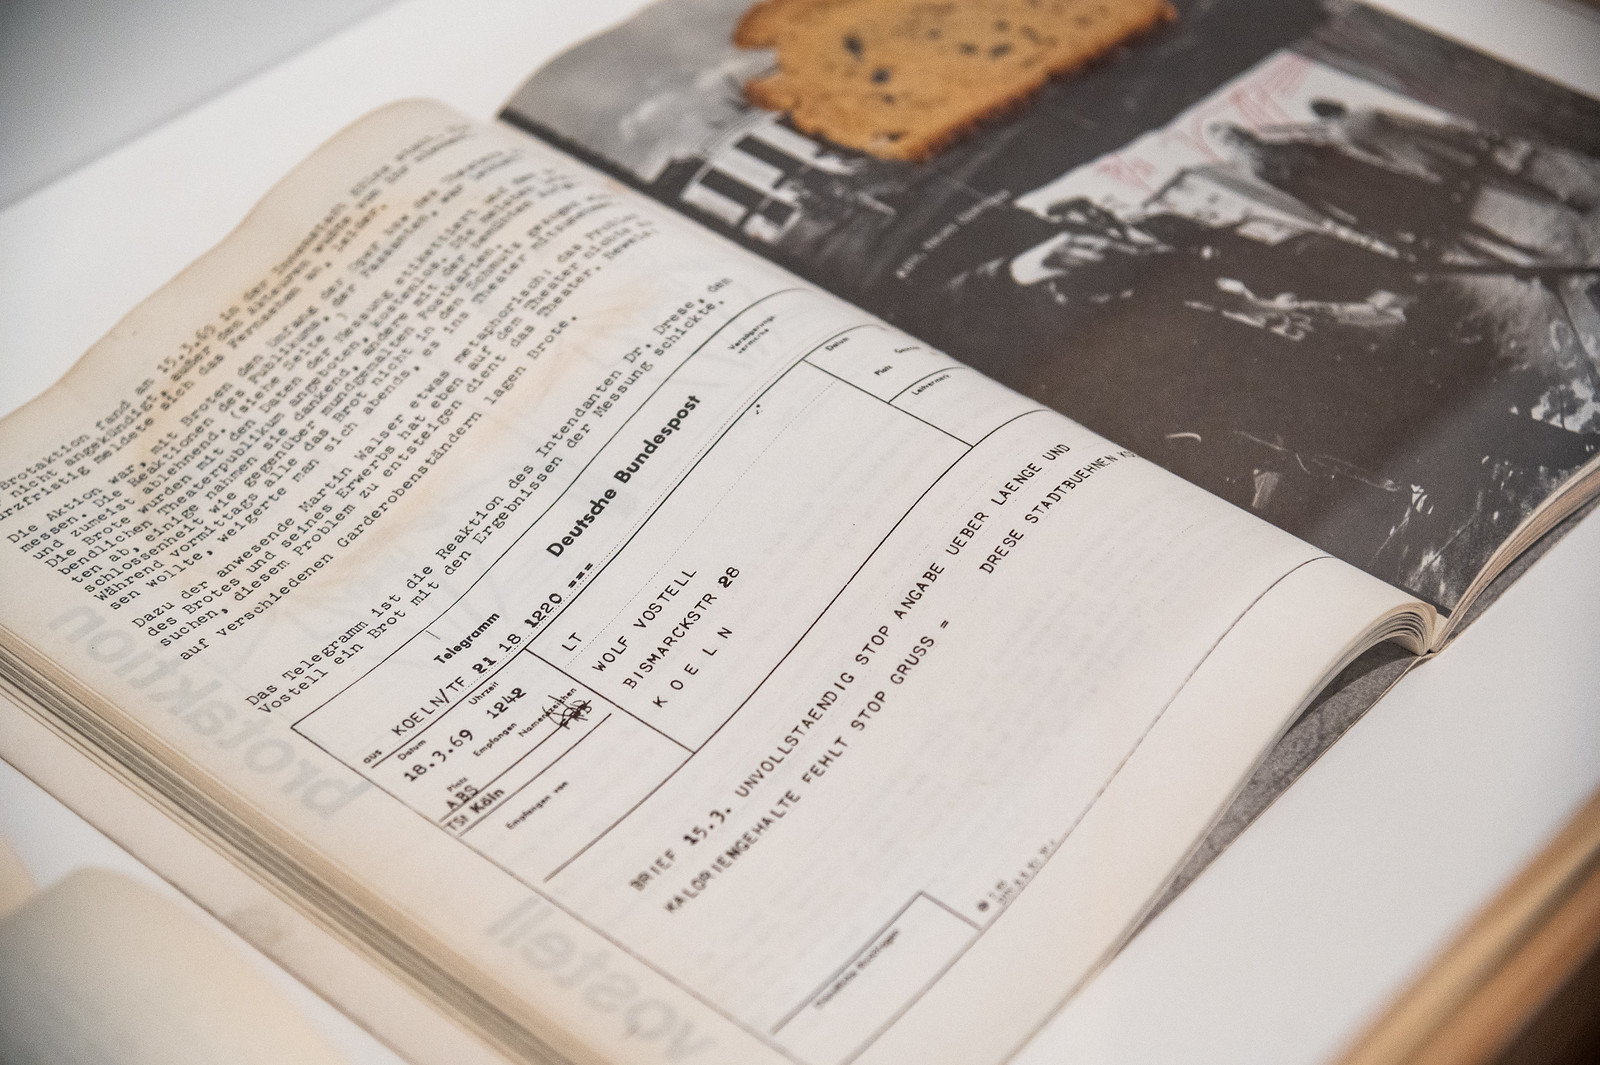 Brotaktion fand am 15.3.69 in der Innenstadt
nicht angekündigt, außer den Akteuren wußte
urzfristig meldete sich das Fernsehen an, leider.
Die Aktion war: mit Broten den Umfang der Oper
messen. Die Reaktionen des Publikums, der Passanten, war
und zumeist ablehnend. (siehe Seite )
Die Brote wurden mit den Daten der Messung etikettiert und dem
bendlichen Theaterpublikum angeboten, kostenlos. Die meisten
ten ab, einige nahmen sie dankend, andere mit der bemühten
schlossenheit wie gegenüber mundgemalten Postkarten.
Während vormittags alle das Brot nicht in den Schmutz
sen wollte, weigerte man sich abends, es ins Theater mitzunehmen
Dazu der anwesende Martin Walser etwas metaphorisch: das
des Brotes und seines Erwerbs hat eben auf dem Theater nichts
suchen, diesem Problem zu entsteigen dient das Theater. Beweis:
auf verschiedenen Garderobenständern lagen Brote.
Das Telegramm ist die Reaktion des Intendanten Dr. Drese, dem
Vostell ein Brot mit den Ergebnissen der Messung schickte.
Telegramm Deutsche Bundespost
Verzögerungs-
vermerke
aus KOELN/TF 21 18 1220 ===
Datum Uhrzeit
18.3.69 1242
Empfangen Namenszeichen
Platz
ABS
TSt Köln
Empfangen von
LT
WOLF VOSTELL
BISMARCKSTR 28
K O E L N
Datum
Platz
Leitvermerk
BRIEF 15.3. UNVOLLSTAENDIG STOP ANGABE UEBER LAENGE UND
KALORIENGEHALTE FEHLT STOP GRUSS =
DRESE STADTBUEHNEN
Dienstliche Rückfragen
brotaktion
vostell